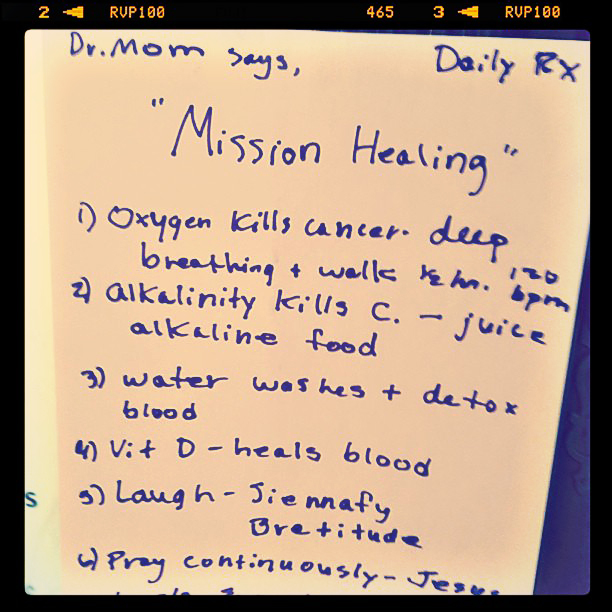 2 ◄ RVP100 465 3 ◄ RVP100
Dr. Mom says, Daily Rx
"Mission Healing"
1) Oxygen kills cancer. deep
breathing + walk ½ hr. 120 bpm
2) alkalinity kills C. – juice
alkaline food
3) water washes + detox
blood
4) Vit D – heals blood
5) Laugh –
6) Pray continuously – Jesus
s